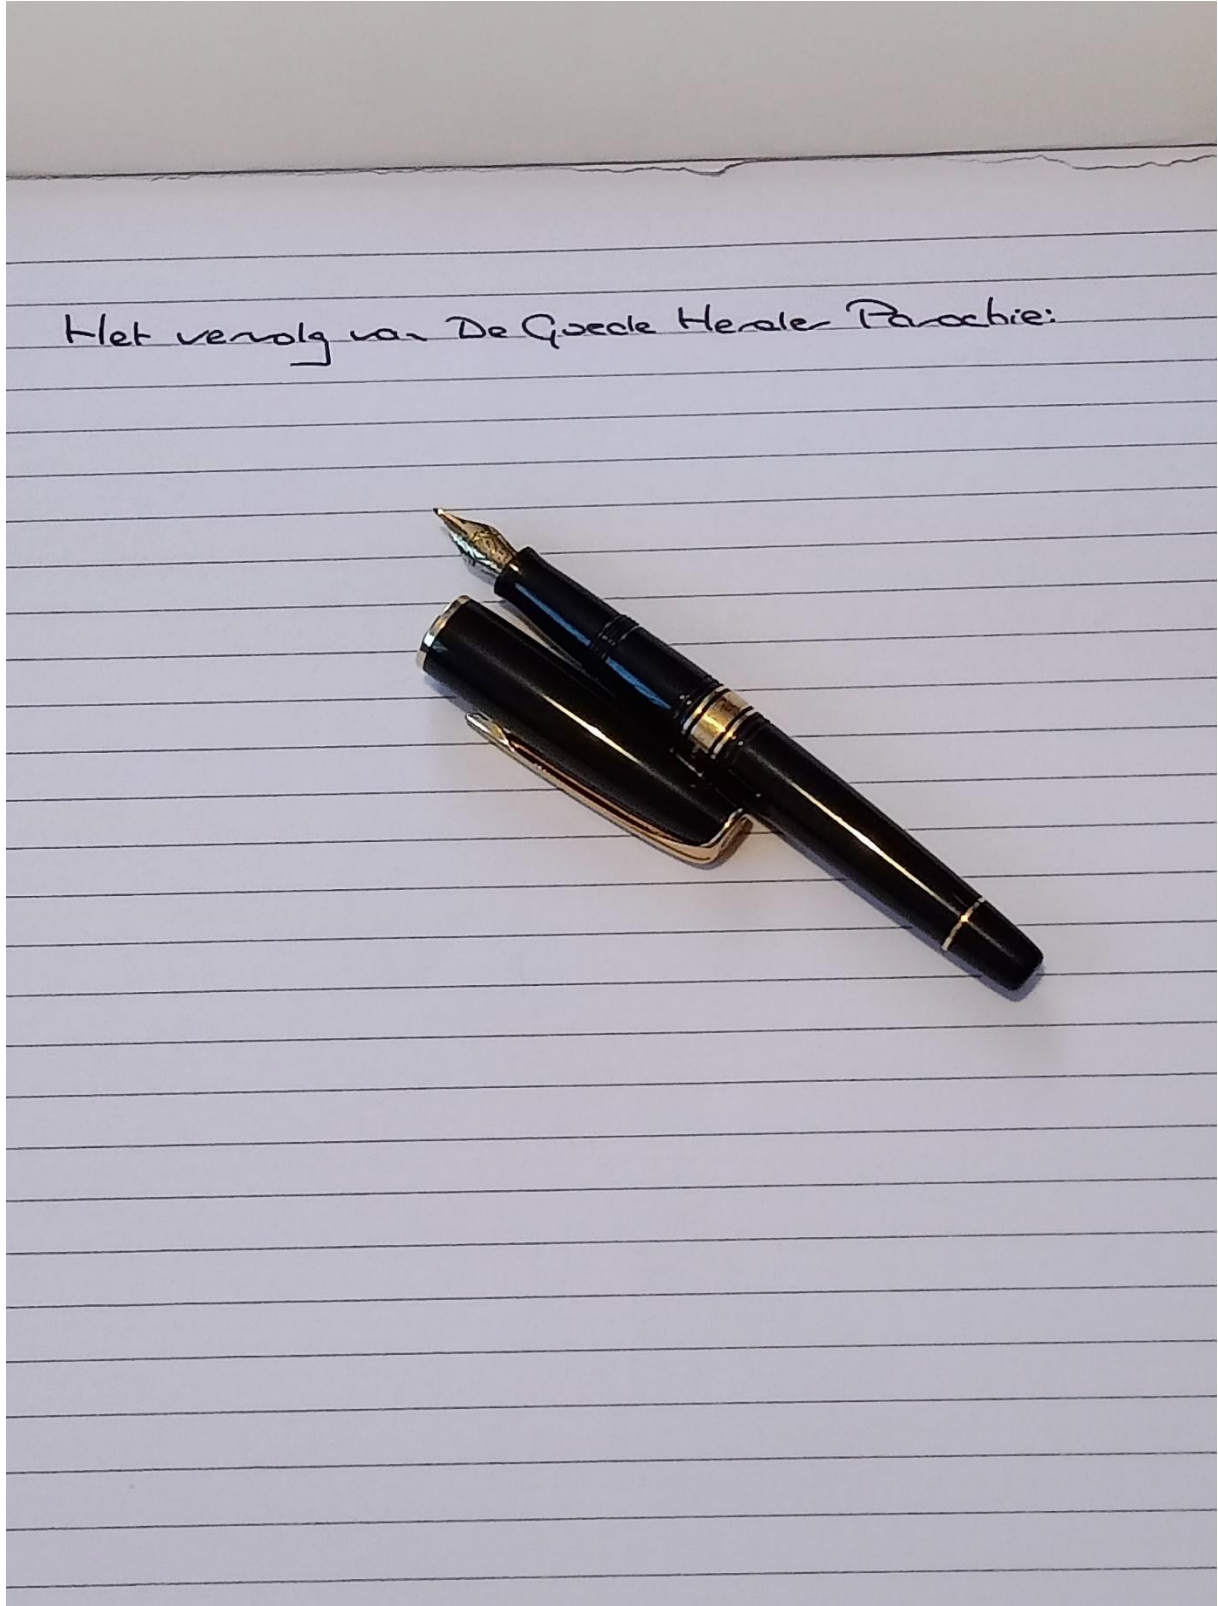 Het vervolg van De Goede Herder Parochie: